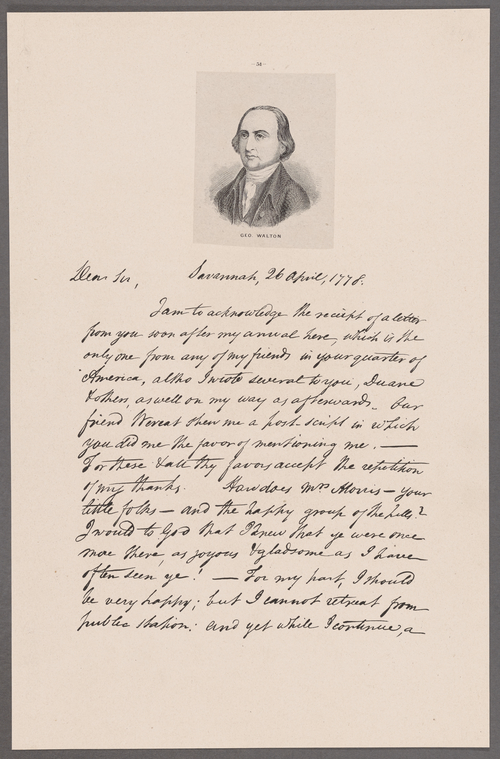 - 51 -
GEO. WALTON
Dear Sir,    Savannah, 26 April, 1778.
I am to acknowledge the reciept of a letter
from you soon after my arrival here, which is the
only one from any of my friends in your quarter of
America, altho I wrote several to you, Duane
& others, as well on my way as afterwards. Our
friend Wereat shew me a post-script in which
you did me the favor of mentioning me. —
For these & all thy favors accept the repetition
of my thanks. How does Mrs Morris — your
little folks — and the happy group of the hills?
I would to God that I knew that ye were once
more there, as joyous & gladsome as I have
often seen ye! — For my part, I should
be very happy; but I cannot retreat from
public station: and yet while I continue, a